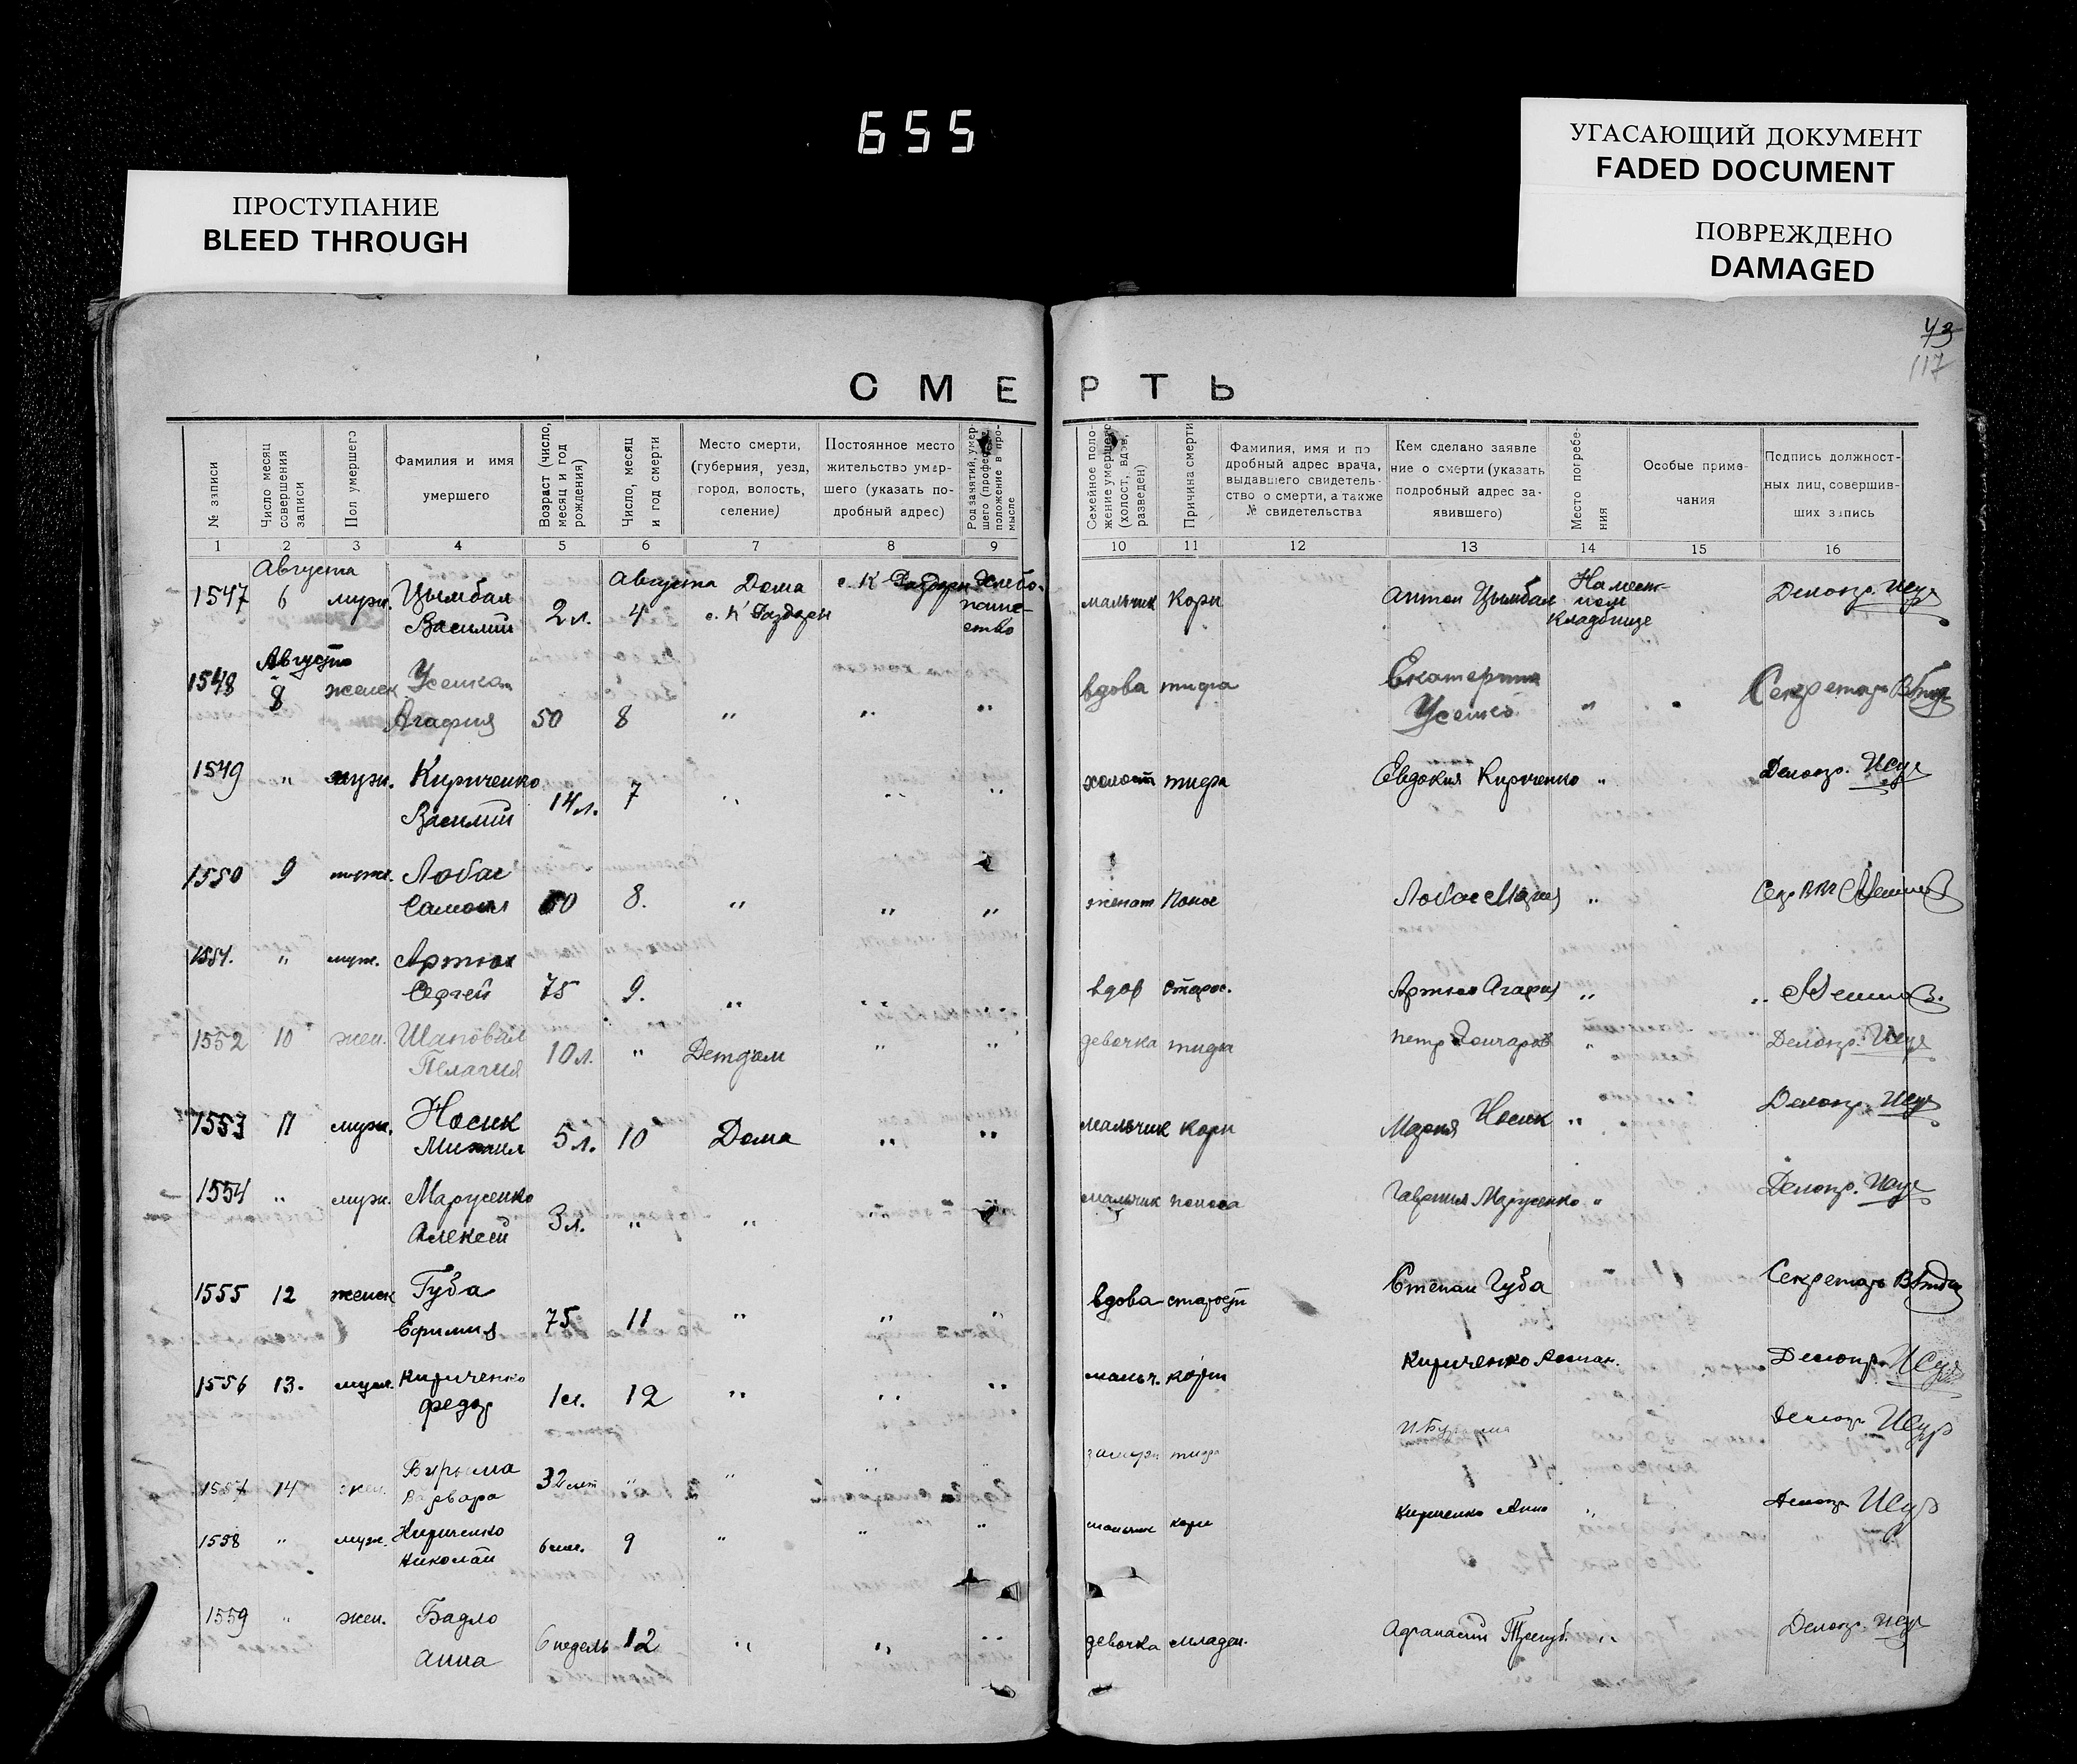 655
УГАСАЮЩИЙ ДОКУМЕНТ
FADED DOCUMENT
ПРОСТУПАНИЕ
BLEED THROUGH
ПОВРЕЖДЕНО
DAMAGED
43
117
СМЕРТЬ
№ записи
Число месяц совершения записи
Пол умершего
Фамилия и имя умершего
Возраст (число, месяц и год рождения)
Число, месяц и год смерти
Место смерти, (губерния, уезд, город, волость, селение)
Постоянное место жительство умершего (указать подробный адрес)
Род занятий, умершего (профессия, положение в промысле
Семейное положение умершего (холост, вдов, разведен)
Причина смерти
Фамилия, имя и подробный адрес врача, выдавшего свидетельство о смерти, а также № свидетельства
Кем сделано заявление о смерти (указать подробный адрес заявившего)
Место погребения
Особые примечания
Подпись должностных лиц, совершивших запись
1 2 3 4 5 6 7 8 9 10 11 12 13 14 15 16
Августа Августа Дома с. К
1547 6 муж. Цымбал Василий 2 л. 4 с. К Хлебопашество мальчик Кори Антон Цымбал На местном кладбище Делопр.
Августа
1548 8 женск Агафия 50 8 " " " вдова тифа Екатерина " Секретарь
1549 " муж. Кириченко Василий 14 л. 7 " " " холост тифа Евдокия Кириченко " Делопр.
1550 9 муж. Лобас 8. " " " женат Понос Лобас Мария "
1551. " муж. Артюх Сергей 75 9. " " " вдов старос. Артюх "
1552 10 жен. Шаповал Пелагия 10 л. " Детдом " " девочка тифа Петр Гончаров " Делопр.
1553 11 муж. Носик Михаил 5 л. 10 Дома " " мальчик Кори Мария Носик " Делопр.
1554 " муж. Марусенко Алексей 3 л. " " " мальчик поноса Марусенко " Делопр.
1555 12 женск Губа Ефимия 75 11 " " " вдова старости Степан Губа Секретарь
1556 13. муж. Кириченко Федор 1 л. 12 " " " мальч. кори Кириченко Делопр.
1557 14 жен. Варвара 32 лет " " " " тифа Делопр
1558 " муж. Кириченко Николай 9 " " " мальчик кори Кириченко Анна " Делопр
1559 " жен. Бадло Анна 6 недель 12 " " " девочка младен. Афанасий " Делопр.